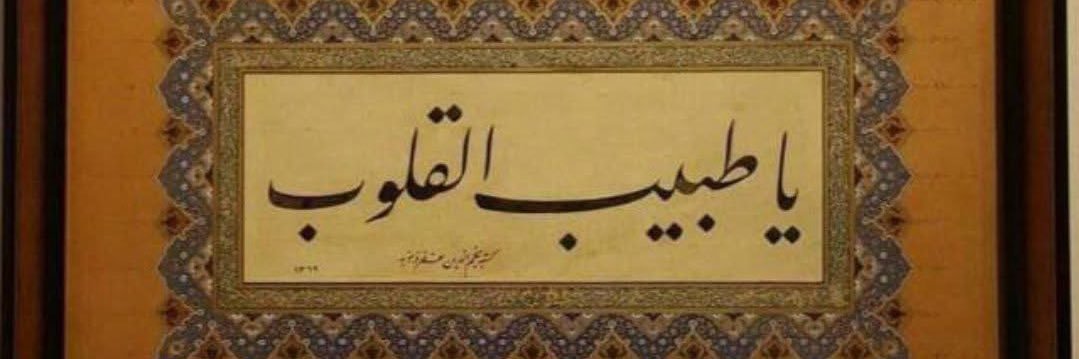 یا طبیب القلوب
۱۳۶۹